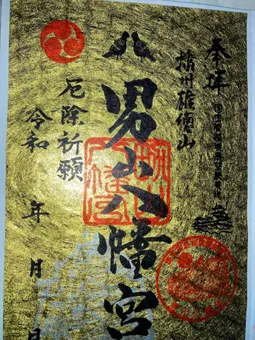 奉拝
播州雄徳山
男山八幡宮
厄除祈願
令和 年 月 日